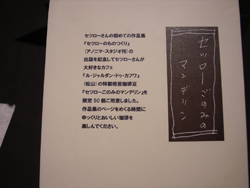 セツローさんの初めての作品集
『セツローのものつくり』
（アノニマ・スタジオ刊）の
出版を記念してセツローさんが
大好きなカフェ
「ル・ジャルダン・ドゥ・カアワ」
（松山）の特製焙煎珈琲豆
『セツローごのみのマンデリン』を
限定50個ご用意しました。
作品集のページをめくる時間に
ゆっくりとおいしい珈琲を
楽しんでください。
セツローごのみの
マンデリン